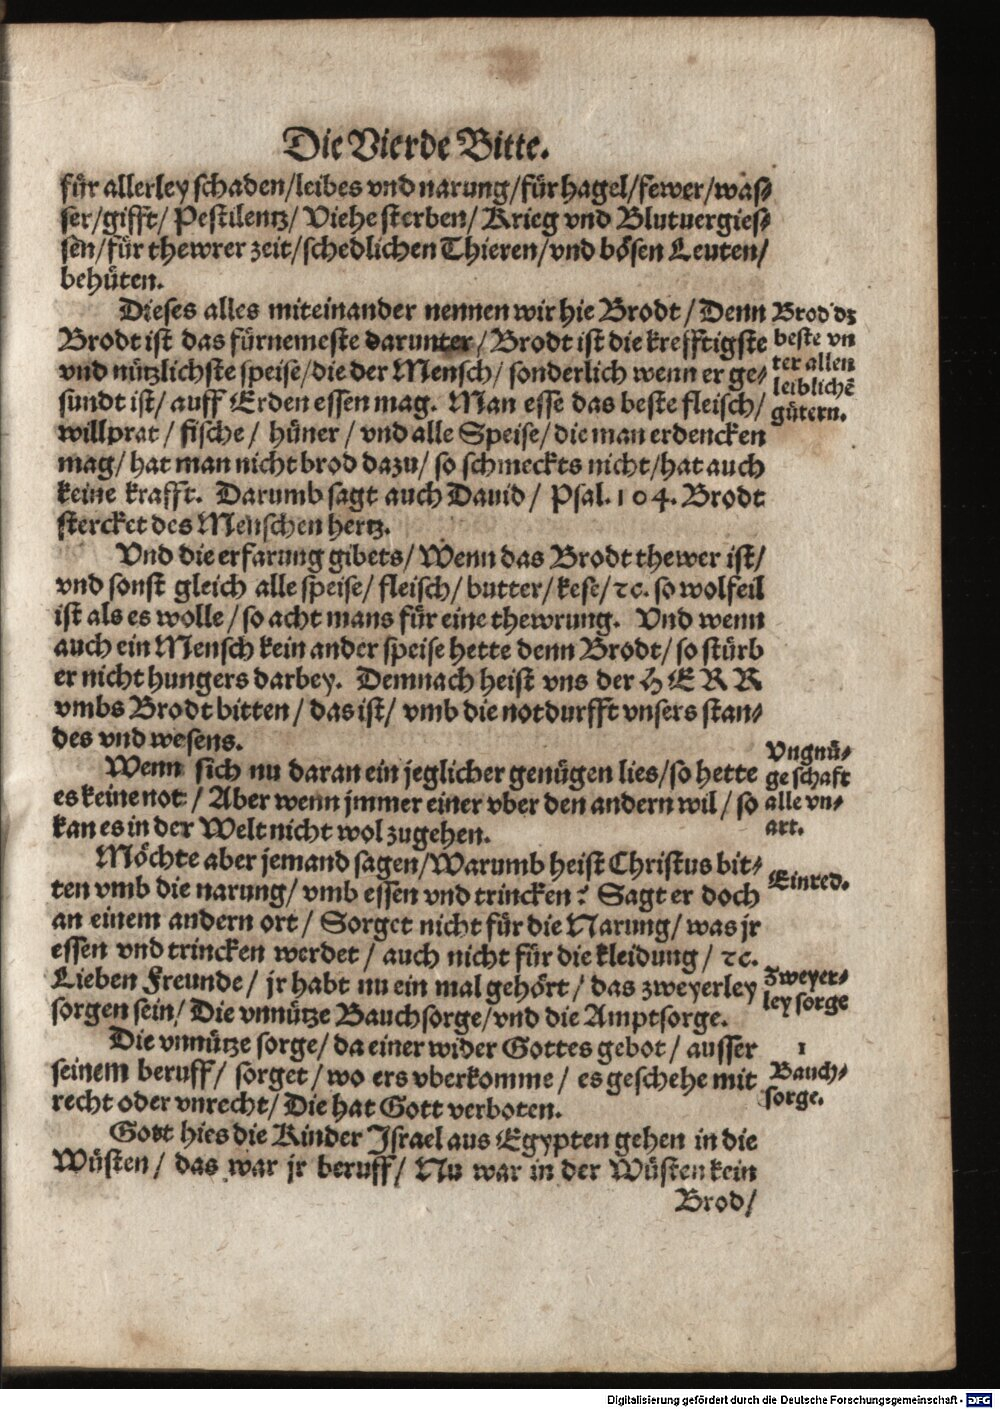 Die Vierde Bitte.
für allerley schaden/leibes vnd narung/für hagel/fewer/was-
ser/gifft/ Pestilentz/ Viehe sterben/ Krieg vnd Blutuergies-
sen/für thewrer zeit/schedlichen Thieren/vnd bösen Leuten/
behüten.
Dieses alles miteinander nennen wir hie Brodt/ Denn
Brodt ist das fürnemeste darunter/ Brodt ist die krefftigste
vnd nützlichste speise/die der Mensch/ sonderlich wenn er ge-
sundt ist/ auff Erden essen mag. Man esse das beste fleisch/
willprat/ fische/ hüner/ vnd alle Speise/ die man erdencken
mag/ hat man nicht brod dazu/ so schmeckts nicht/hat auch
keine krafft. Darumb sagt auch Dauid/ Psal. 104. Brodt
stercket des Menschen hertz.
Brod dz
beste vn
ter allen
leiblichē
gütern.
Vnd die erfarung gibets/ Wenn das Brodt thewer ist/
vnd sonst gleich alle speise/ fleisch/ butter/ kese/ ꝛc. so wolfeil
ist als es wolle/ so acht mans für eine thewrung. Vnd wenn
auch ein Mensch kein ander speise hette denn Brodt/ so stürb
er nicht hungers darbey. Demnach heist vns der HERR
vmbs Brodt bitten/ das ist/ vmb die notdurfft vnsers stan-
des vnd wesens.
Wenn sich nu daran ein jeglicher genügen lies/so hette
es keine not/ Aber wenn jmmer einer vber den andern wil/ so
kan es in der Welt nicht wol zugehen.
Vngnü-
ge schaft
alle vn-
art.
Möchte aber jemand sagen/Warumb heist Christus bit-
ten vmb die narung/ vmb essen vnd trincken? Sagt er doch
an einem andern ort/ Sorget nicht für die Narung/ was jr
essen vnd trincken werdet/ auch nicht für die kleidung/ ꝛc.
Lieben Freunde/ jr habt nu ein mal gehört/ das zweyerley
sorgen sein/ Die vnnütze Bauchsorge/vnd die Amptsorge.
Einred.
Zweyer-
ley sorge
Die vnnütze sorge/ da einer wider Gottes gebot/ ausser
seinem beruff/ sorget/ wo ers vberkomme/ es geschehe mit
recht oder vnrecht/ Die hat Gott verboten.
1
Bauch-
sorge.
Gott hies die Kinder Israel aus Egypten gehen in die
Wüsten/ das war jr beruff/ Nu war in der Wüsten kein
Brod/
Digitalisierung gefördert durch die Deutsche Forschungsgemeinschaft - DFG